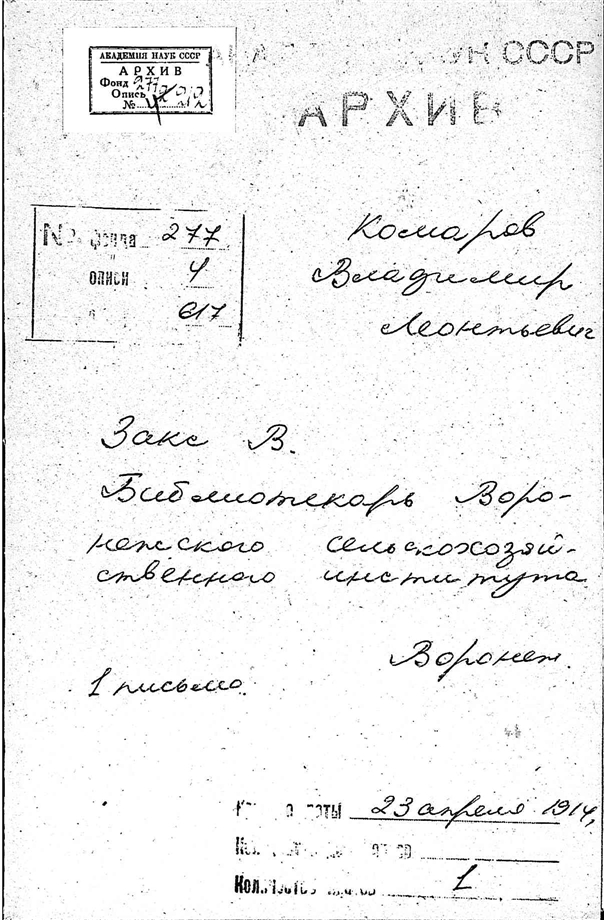 АКАДЕМИЯ НАУК СССР
АРХИВ
Фонд 277
Опись 4
№
УК СССР
АРХИВ
№ фонда 277
описи 4
617
Комаров
Владимир
Леонтьевич
Закс В.
Библиотекарь Воро-
нежского сельскохозяй-
ственного института
Воронеж.
1 письмо.
даты 23 апреля 1914,
Количество 1